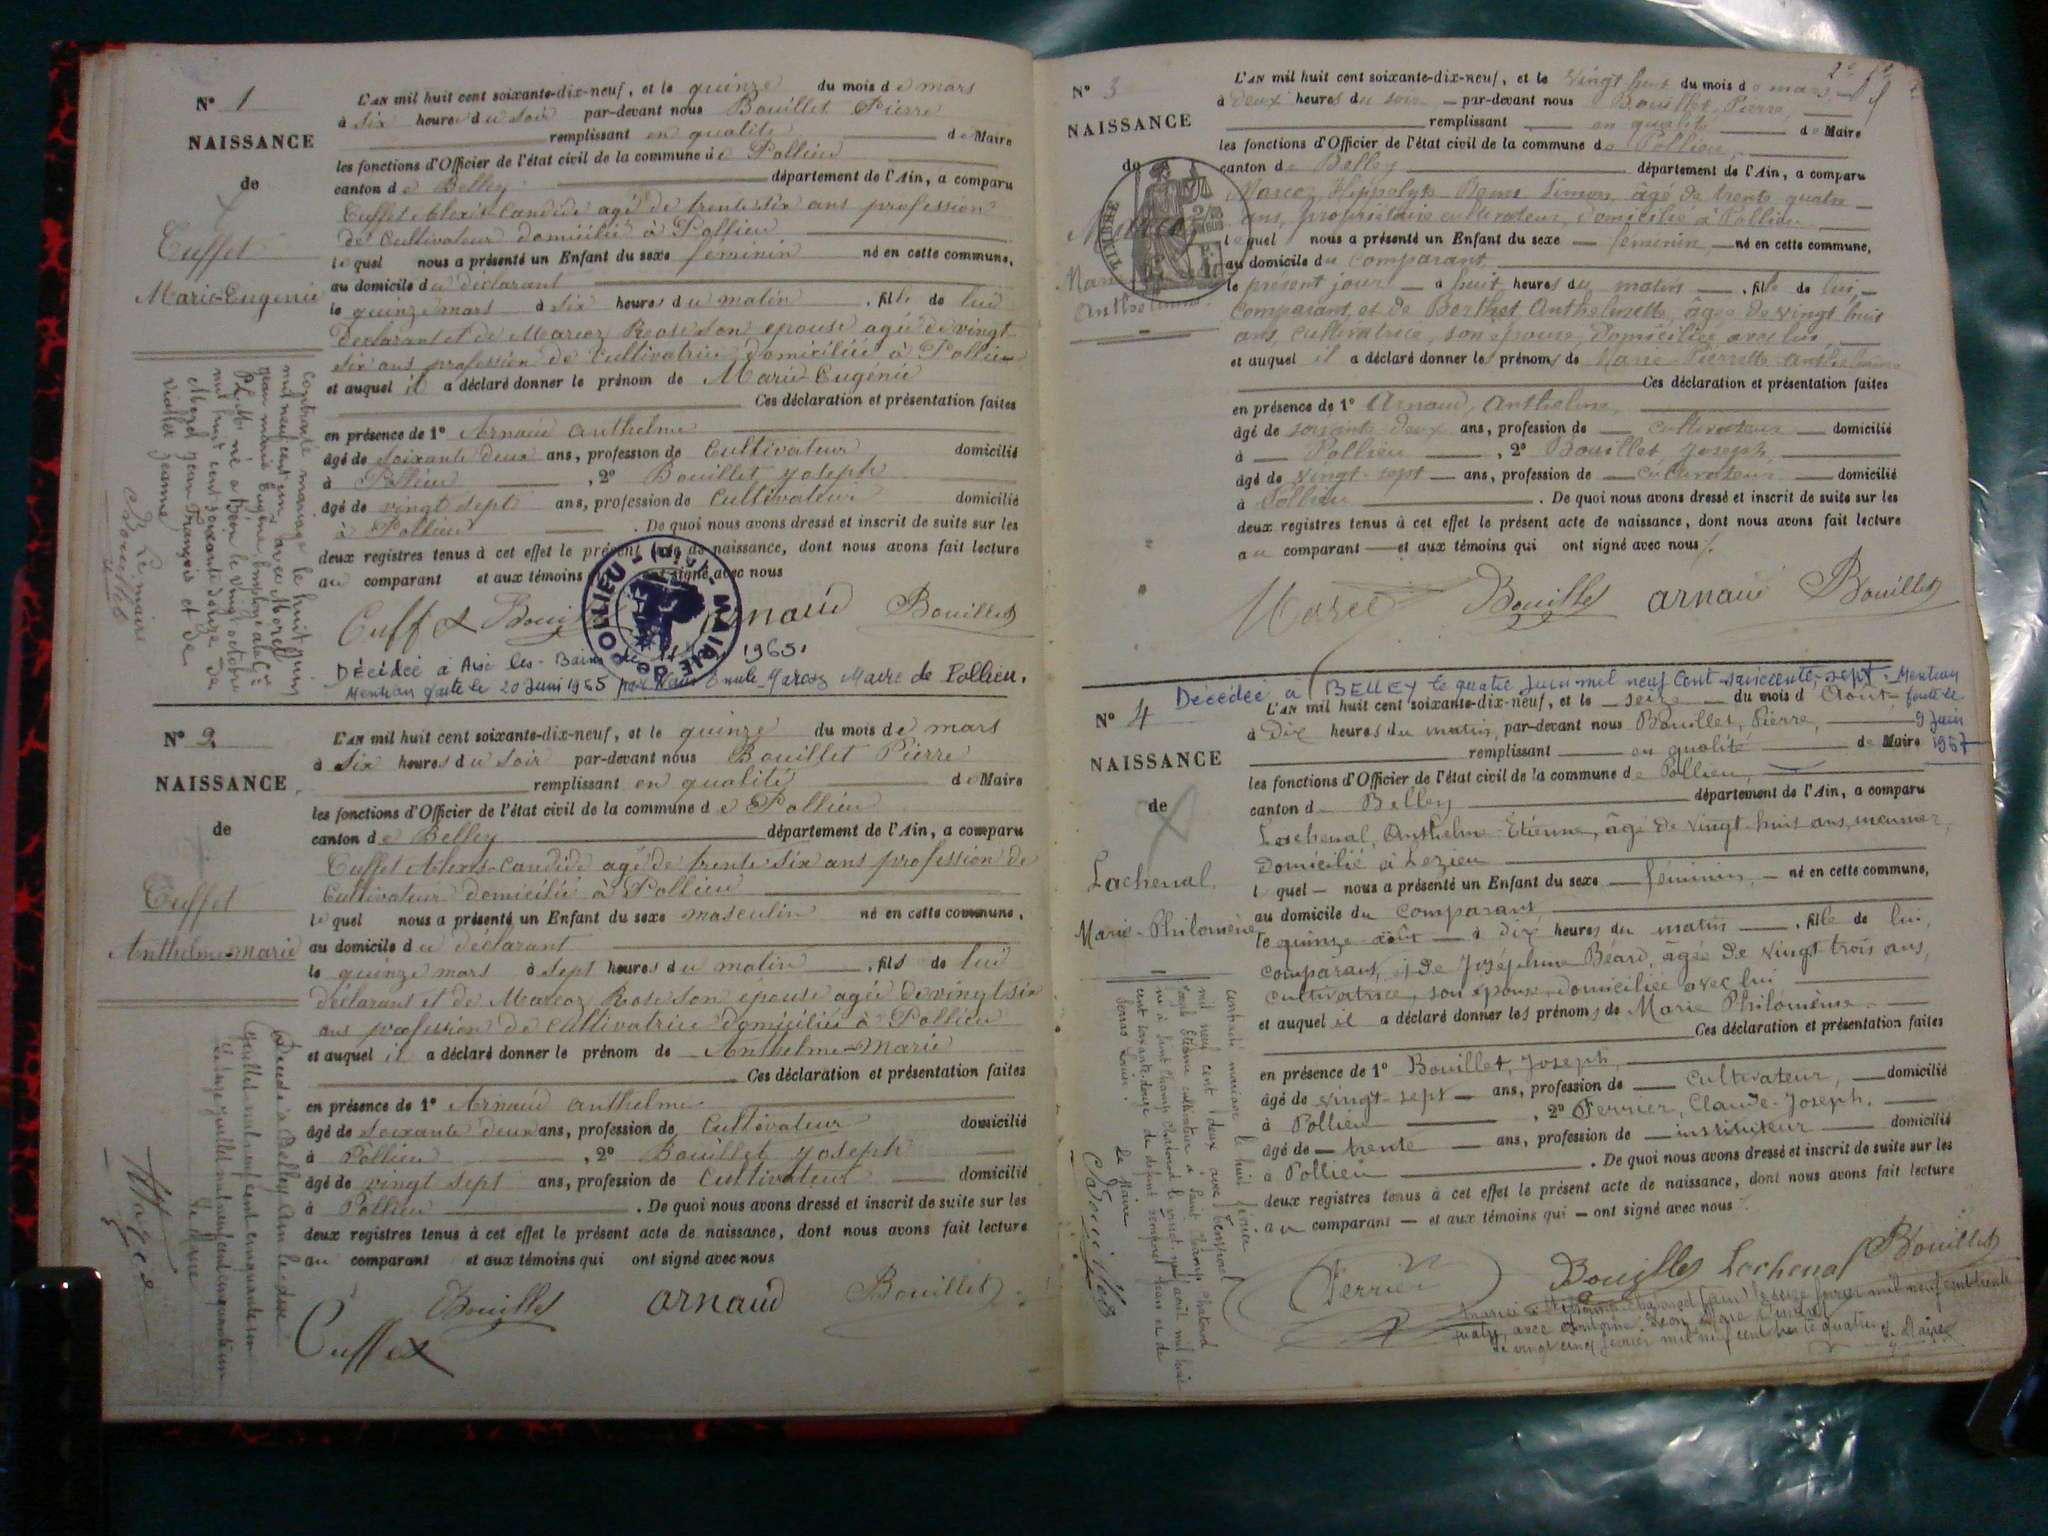 N° 1
NAISSANCE
de
Cuffet
Marie-Eugénie
L'AN mil huit cent soixante-dix-neuf, et le quinze du mois de mars
à six heures du soir par-devant nous Bouillet Pierre
remplissant en qualité de Maire
les fonctions d'Officier de l'état civil de la commune de Pollieu
canton de Belley département de l'Ain, a comparu
Cuffet Alexis-Candide agé de trente six ans profession
de cultivateur domicilié à Pollieu
lequel nous a présenté un Enfant du sexe féminin né en cette commune,
au domicile du déclarant
le quinze mars à six heures du matin, fille de lui
déclarant et de Marcoz Rose son épouse agée de vingt
six ans profession de cultivatrice domiciliée à Pollieu
et auquel il a déclaré donner le prénom de Marie Eugénie
Ces déclaration et présentation faites
en présence de 1° Arnaud Anthelme
âgé de soixante deux ans, profession de Cultivateur domicilié
à Pollieu, 2° Bouillet Joseph
âgé de vingt sept ans, profession de Cultivateur domicilié
à Pollieu. De quoi nous avons dressé et inscrit de suite sur les
deux registres tenus à cet effet le présent acte de naissance, dont nous avons fait lecture
au comparant et aux témoins signé avec nous
Cuffet Arnaud Bouillet
MAIRIE DE POLLIEU
Décédée à Aix les-Bains 1965.
Mention faite le 20 Juin 1965 Marcoz Maire de Pollieu.
contracté mariage le huit juin
mil neuf cent un avec Morel
né à Béon le vingt octobre
mil huit cent soixante douze de
Morel Jean François et de
Viollet Jeanne
Le maire
Bouillet
N° 2
NAISSANCE
de
Cuffet
Anthelme-marie
L'AN mil huit cent soixante-dix-neuf, et le quinze du mois de mars
à six heures du soir par-devant nous Bouillet Pierre
remplissant en qualité de Maire
les fonctions d'Officier de l'état civil de la commune de Pollieu
canton de Belley département de l'Ain, a comparu
Cuffet Alexis-Candide agé de trente six ans profession de
Cultivateur domicilié à Pollieu
lequel nous a présenté un Enfant du sexe masculin né en cette commune,
au domicile du déclarant
le quinze mars à sept heures du matin, fils de lui
déclarant et de Marcoz Rose son épouse agée de vingt six
ans profession de cultivatrice domiciliée à Pollieu
et auquel il a déclaré donner le prénom de Anthelme-Marie
Ces déclaration et présentation faites
en présence de 1° Arnaud Anthelme
âgé de soixante deux ans, profession de Cultivateur domicilié
à Pollieu, 2° Bouillet Joseph
âgé de vingt sept ans, profession de Cultivateur domicilié
à Pollieu. De quoi nous avons dressé et inscrit de suite sur les
deux registres tenus à cet effet le présent acte de naissance, dont nous avons fait lecture
au comparant et aux témoins qui ont signé avec nous
Bouillet arnaud Bouillet
Cuffet
Décédé à Belley Ain le
juillet mil neuf cent cinquante un
juillet mil neuf cent cinquante un
Le Maire
N° 3
NAISSANCE
de
TIMBRE
L'AN mil huit cent soixante-dix-neuf, et le vingt huit du mois de mars
à deux heures du soir par-devant nous Bouillet, Pierre,
remplissant en qualité de Maire
les fonctions d'Officier de l'état civil de la commune de Pollieu,
canton de Belley département de l'Ain, a comparu
Marcoz, Hippolyte Simon, âgé de trente quatre
ans, propriétaire cultivateur, domicilié à Pollieu
lequel nous a présenté un Enfant du sexe féminin, né en cette commune,
au domicile du comparant,
le présent jour à huit heures du matin, fille de lui,
comparant, et de Berthet Anthelmette, âgée de vingt huit
ans, cultivatrice, son épouse, domiciliée avec lui,
et auquel il a déclaré donner les prénoms de Marie Pierrette
Ces déclaration et présentation faites
en présence de 1° Arnaud, Anthelme,
âgé de soixante deux ans, profession de cultivateur domicilié
à Pollieu, 2° Bouillet, Joseph,
âgé de vingt-sept ans, profession de cultivateur domicilié
à Pollieu. De quoi nous avons dressé et inscrit de suite sur les
deux registres tenus à cet effet le présent acte de naissance, dont nous avons fait lecture
au comparant et aux témoins qui ont signé avec nous
Bouillet arnaud Bouillet
Décédée à BELLEY le quatre juin mil neuf cent soixante-sept. Mention
faite le
9 juin
1967
N° 4
NAISSANCE
de
Lachenal,
Marie-Philomène
L'AN mil huit cent soixante-dix-neuf, et le seize du mois d'Août
à Dix heures du matin, par-devant nous Bouillet, Pierre,
remplissant en qualité de Maire
les fonctions d'Officier de l'état civil de la commune de Pollieu,
canton de Belley département de l'Ain, a comparu
Lachenal, Anthelme-Étienne, âgé de vingt-huit ans, meunier,
domicilié à
lequel nous a présenté un Enfant du sexe féminin, né en cette commune,
au domicile du comparant,
le quinze août à dix heures du matin, fille de lui,
comparant, et de Joséphine Béard, âgée de vingt-trois ans,
cultivatrice, son épouse, domiciliée avec lui
et auquel il a déclaré donner les prénoms de Marie Philomène.
Ces déclaration et présentation faites
en présence de 1° Bouillet, Joseph,
âgé de vingt-sept ans, profession de cultivateur, domicilié
à Pollieu, 2° Perrier, Claude-Joseph,
âgé de trente ans, profession de instituteur domicilié
à Pollieu. De quoi nous avons dressé et inscrit de suite sur les
deux registres tenus à cet effet le présent acte de naissance, dont nous avons fait lecture
au comparant et aux témoins qui ont signé avec nous
Perrier Bouillet Lachenal Bouillet
contracté mariage le huit février
mil neuf cent deux avec
cultivateur à Saint Champ Chatonod
né à Saint Champ Chatonod le vingt août mil huit
cent soixante-douze de défunt Jean et de
Le Maire
Bouillet